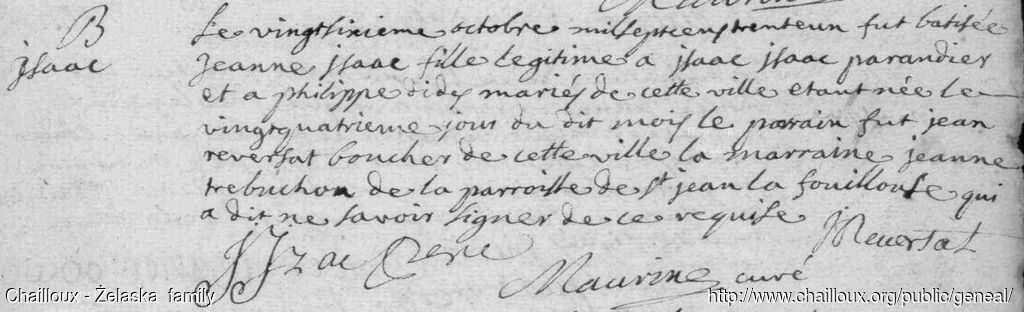 B
jsaac
Le vingtsixieme octobre millseptcenstrenteun fut batisée
Jeanne jsaac fille legitime a jsaac jsaac parandier
et a philippe dides mariés de cette ville etant née le
vingtquatrieme jour du dit mois le parrain fut jean
reversat boucher de cette ville la marraine jeanne
trebuchon de la parroisse de st jean la fouillouse qui
a dit ne savoir signer de ce requise
JReversat
JJzac Pere
Maurine curé
Chailloux - Żelaska family
http://www.chailloux.org/public/geneal/